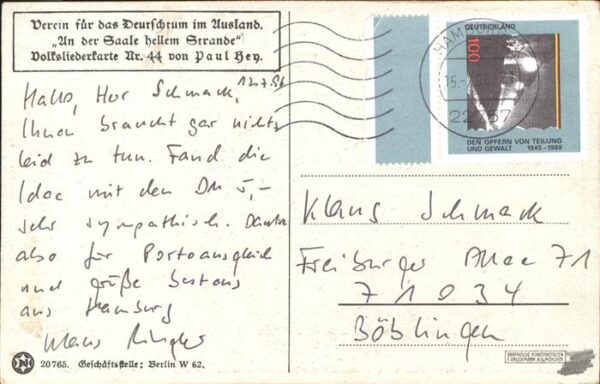 Verein für das Deutschtum im Ausland.
„An der Saale hellem Strande"
Volksliederkarte Nr. 44 von Paul Hey.
Hallo, Herr Schmack,
Ihnen braucht gar nichts
leid zu tun. Fand die
Idee mit den DM 5,-
sehr sympathisch. Danke
also für Portoausgleich
und grüße bestens
aus Hamburg
Klaus
20765. Geschäftsstelle: Berlin W 62.
DEUTSCHLAND
100
HAMBURG
DEN OPFERN VON TEILUNG
UND GEWALT 1945-1989
Klaus Schmack
Freiburger Allee 71
71034
Böblingen
GRAPHISCHE KUNSTANSTALTEN
F. BRUCKMANN A.G. MÜNCHEN